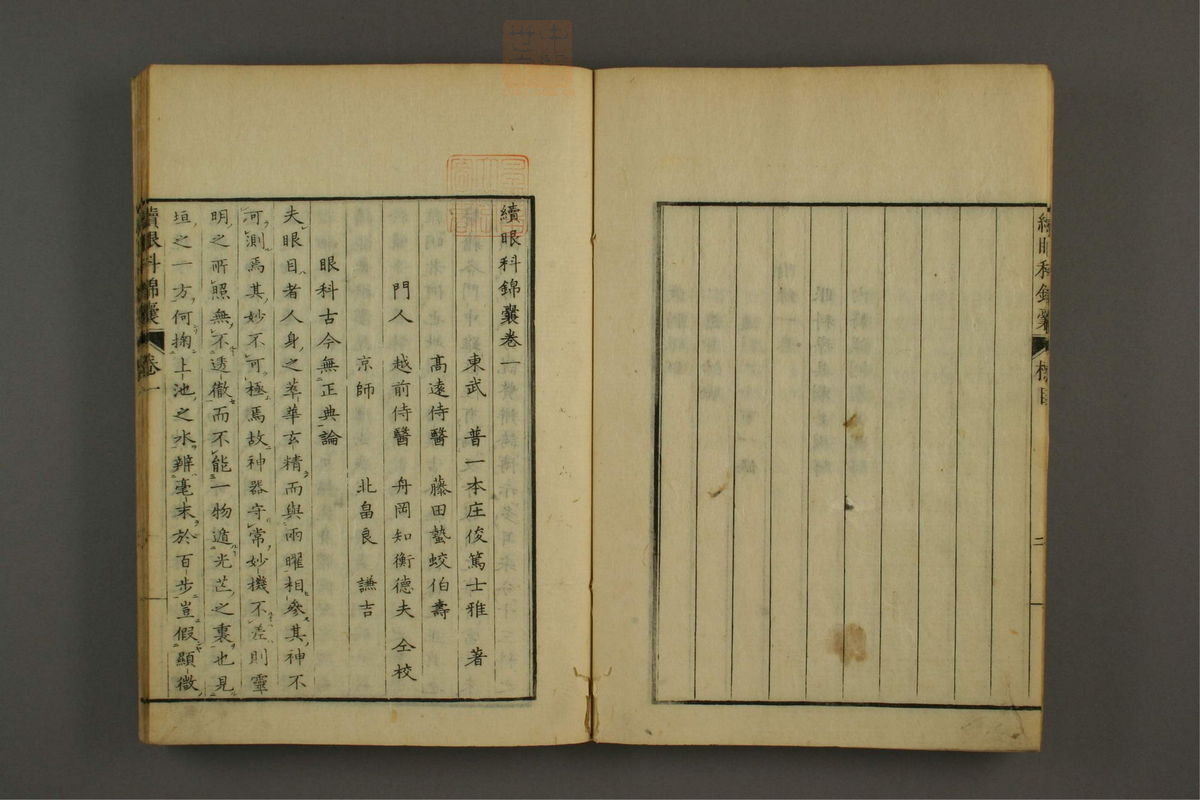 續眼科錦囊
標目
二
續眼科錦囊卷一
東武 普一本庄俊篤士雅 著
高遠侍醫 藤田蟄蛟伯壽
門人 越前侍醫 舟岡知衡德夫 仝校
京師 北畠良 謙吉
眼科古今無正典論
夫眼目者人身之萃華玄精而與兩曜相參其神不
可測焉其妙不可極焉故神器守常妙機不差則靈
明之所照無不透徹而不能一物遁光芒之裏也見
垣之一方何掬上池之水辨毫末於百步豈假顯微
續眼科錦囊 卷一